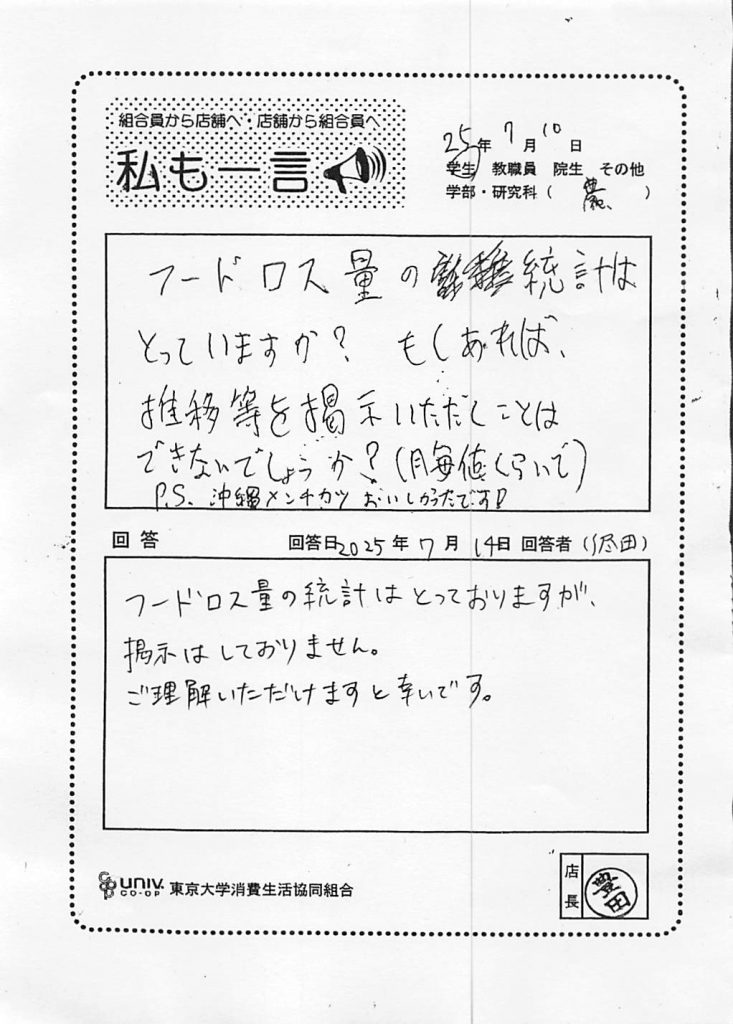 組合員から店舗へ・店舗から組合員へ
私も一言
25年7月10日
学生 教職員 院生 その他
学部・研究科（農）
フードロス量の統計は
とっていますか？ もしあれば、
推移等を掲示いただくことは
できないでしょうか？(月毎値くらいで)
P.S. 沖縄メンチカツ おいしかったです!
回答 回答日2025年7月14日 回答者（田）
フードロス量の統計はとっておりますが、
掲示はしておりません。
ご理解いただけますと幸いです。
UNIV. CO-OP 東京大学消費生活協同組合
店長 豊田